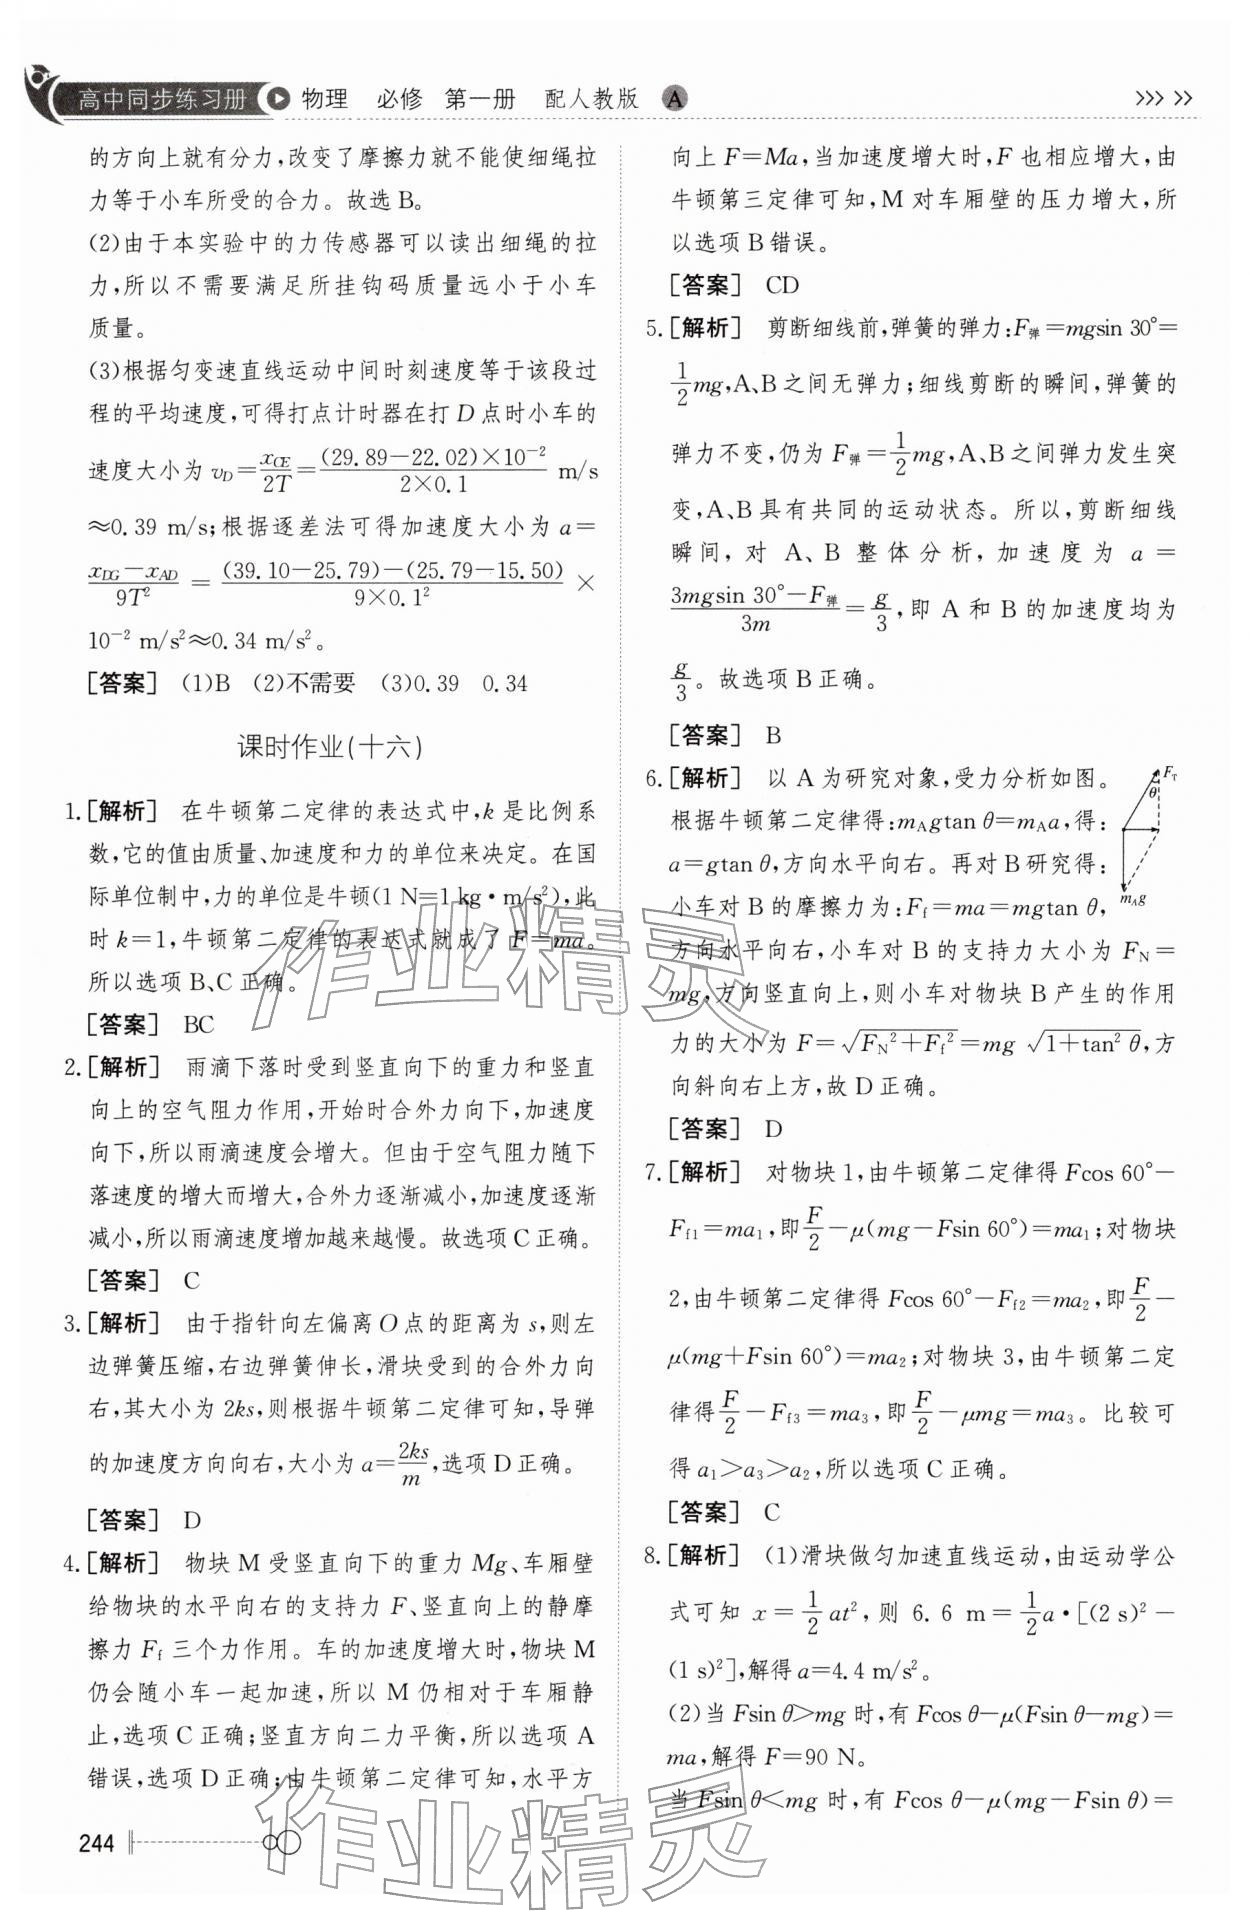 高中同步练习册 物理 必修 第一册 配人教版 A
的方向上就有分力,改变了摩擦力就不能使细绳拉
力等于小车所受的合力。故选B。
(2)由于本实验中的力传感器可以读出细绳的拉
力,所以不需要满足所挂钩码质量远小于小车
质量。
(3)根据匀变速直线运动中间时刻速度等于该段过
程的平均速度,可得打点计时器在打 D 点时小车的
速度大小为 v_D=x_CE/2T=(29.89-22.02)×10⁻²/(2×0.1) m/s
≈0.39 m/s;根据逐差法可得加速度大小为 a=
(x_DG-x_AD)/9T²=((39.10-25.79)-(25.79-15.50))/(9×0.1²)×
10⁻² m/s²≈0.34 m/s²。
[答案] (1)B (2)不需要 (3)0.39 0.34
课时作业(十六)
1.[解析] 在牛顿第二定律的表达式中,k 是比例系
数,它的值由质量、加速度和力的单位来决定。在国
际单位制中,力的单位是牛顿(1 N=1 kg·m/s²),此
时 k=1,牛顿第二定律的表达式就成了 F=ma。
所以选项B、C正确。
[答案] BC
2.[解析] 雨滴下落时受到竖直向下的重力和竖直
向上的空气阻力作用,开始时合外力向下,加速度
向下,所以雨滴速度会增大。但由于空气阻力随下
落速度的增大而增大,合外力逐渐减小,加速度逐渐
减小,所以雨滴速度增加越来越慢。故选项C正确。
[答案] C
3.[解析] 由于指针向左偏离 O 点的距离为 s,则左
边弹簧压缩,右边弹簧伸长,滑块受到的合外力向
右,其大小为 2ks,则根据牛顿第二定律可知,导弹
的加速度方向向右,大小为 a=2ks/m,选项D正确。
[答案] D
4.[解析] 物块 M 受竖直向下的重力 Mg、车厢壁
给物块的水平向右的支持力 F、竖直向上的静摩
擦力 F_f 三个力作用。车的加速度增大时,物块 M
仍会随小车一起加速,所以 M 仍相对于车厢静
止,选项C正确;竖直方向二力平衡,所以选项 A
错误,选项D正确;由牛顿第二定律可知,水平方
244
向上 F=Ma,当加速度增大时,F 也相应增大,由
牛顿第三定律可知,M 对车厢壁的压力增大,所
以选项B错误。
[答案] CD
5.[解析] 剪断细线前,弹簧的弹力:F弹=mgsin 30°=
1/2 mg,A、B之间无弹力;细线剪断的瞬间,弹簧的
弹力不变,仍为 F弹=1/2 mg,A、B之间弹力发生突
变,A、B具有共同的运动状态。所以,剪断细线
瞬间,对 A、B 整体分析,加速度为 a=
(3mgsin 30°-F弹)/3m=g/3,即 A 和 B 的加速度均为
g/3。故选项B正确。
[答案] B
6.[解析] 以 A 为研究对象,受力分析如图。
根据牛顿第二定律得:m_A gtan θ=m_A a,得:
a=gtan θ,方向水平向右。再对B研究得:
小车对 B 的摩擦力为:F_f=ma=mgtan θ,
F_T
θ
m_A g
方向水平向右,小车对 B 的支持力大小为 F_N=
mg,方向竖直向上,则小车对物块 B 产生的作用
力的大小为 F=√(F_N²+F_f²)=mg √(1+tan² θ),方
向斜向右上方,故D正确。
[答案] D
7.[解析] 对物块 1,由牛顿第二定律得 Fcos 60°-
F_f1=ma₁,即 F/2-μ(mg-Fsin 60°)=ma₁;对物块
2,由牛顿第二定律得 Fcos 60°-F_f2=ma₂,即 F/2-
μ(mg+Fsin 60°)=ma₂;对物块 3,由牛顿第二定
律得 F/2-F_f3=ma₃,即 F/2-μmg=ma₃。比较可
得 a₁>a₃>a₂,所以选项C正确。
[答案] C
8.[解析] (1)滑块做匀加速直线运动,由运动学公
式可知 x=1/2 at²,则 6.6 m=1/2 a·[(2 s)²-
(1 s)²],解得 a=4.4 m/s²。
(2)当 Fsin θ>mg 时,有 Fcos θ-μ(Fsin θ-mg)=
ma,解得 F=90 N。
当 Fsin θ<mg 时,有 Fcos θ-μ(mg-Fsin θ)=
作业精灵
作业精灵